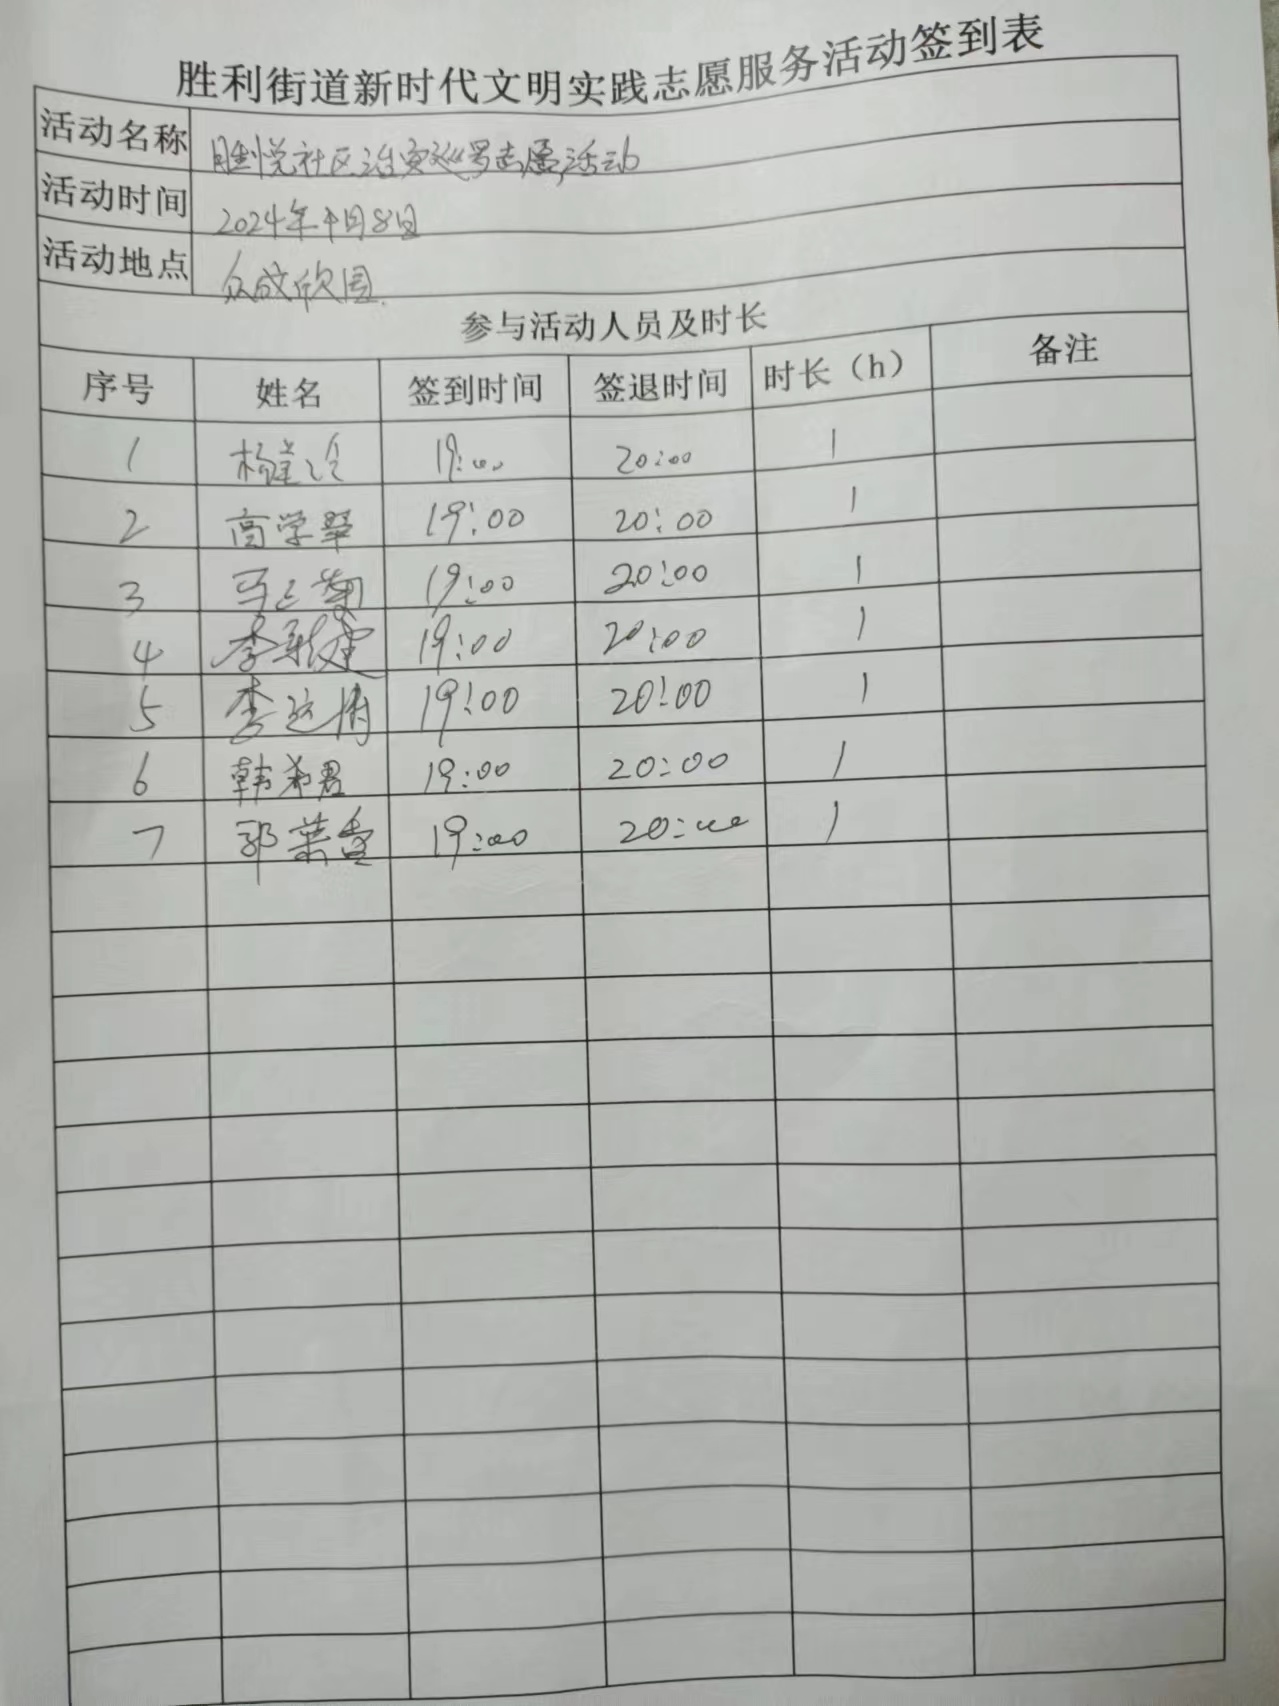 胜利街道新时代文明实践志愿服务活动签到表
活动名称 胜悦社区治安巡逻志愿活动
活动时间 2024年9月8日
活动地点 众成欣园
参与活动人员及时长
序号 姓名 签到时间 签退时间 时长（h） 备注
1 19:00 20:00 1
2 高学翠 19:00 20:00 1
3 马兰菊 19:00 20:00 1
4 李 19:00 20:00 1
5 李 19:00 20:00 1
6 韩希君 19:00 20:00 1
7 郭荣香 19:00 20:00 1